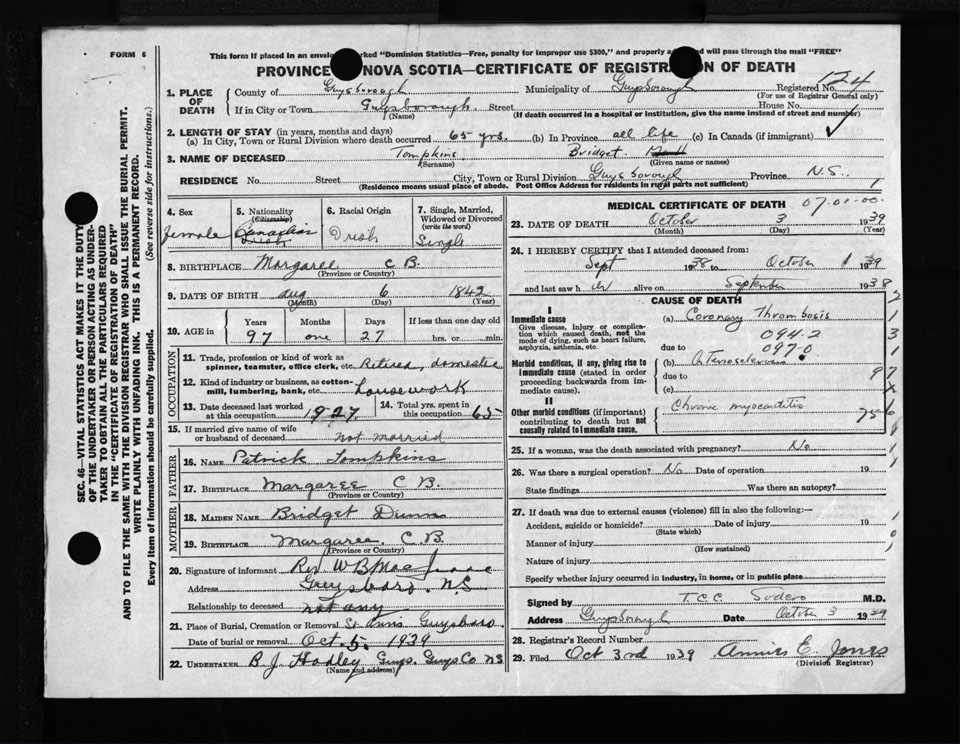 FORM 6
This form if placed in an envelo ked "Dominion Statistics—Free, penalty for improper use $300," and properly a ed will pass through the mail "FREE"
PROVINCE NOVA SCOTIA—CERTIFICATE OF REGISTRA ON OF DEATH
124
1. PLACE OF DEATH
County of Guysborough Municipality of Guysborough Registered No.
(For use of Registrar General only)
If in City or Town Guysborough Street House No.
(Name) (If death occurred in a hospital or institution, give the name instead of street and number)
2. LENGTH OF STAY (in years, months and days)
(a) In City, Town or Rural Division where death occurred 65 yrs. (b) In Province all life (c) In Canada (if immigrant)
3. NAME OF DECEASED Tompkins Bridget
(Surname) (Given name or names)
RESIDENCE No. Street City, Town or Rural Division Guysborough Province N.S. 1
(Residence means usual place of abode. Post Office Address for residents in rural parts not sufficient)
4. Sex
female
5. Nationality
(Citizenship)
Canadian
Irish
6. Racial Origin
Irish
7. Single, Married, Widowed or Divorced
(write the word)
Single
8. BIRTHPLACE Margaree C B
(Province or Country)
9. DATE OF BIRTH Aug 6 1842
(Month) (Day) (Year)
10. AGE in
Years Months Days If less than one day old
97 one 27 hrs. or min.
OCCUPATION
11. Trade, profession or kind of work as
spinner, teamster, office clerk, etc. Retired, domestic
12. Kind of industry or business, as cotton-
mill, lumbering, bank, etc. housework
13. Date deceased last worked
at this occupation 1927
14. Total yrs. spent in
this occupation 65
15. If married give name of wife
or husband of deceased not married
FATHER
16. NAME Patrick Tompkins
17. BIRTHPLACE Margaree C B.
(Province or Country)
MOTHER
18. MAIDEN NAME Bridget Dunn
19. BIRTHPLACE Margaree. C. B
(Province or Country)
20. Signature of informant Rev. W B Mac Isaac
Address Guysboro. N.S
Relationship to deceased not any
21. Place of Burial, Cremation or Removal St Anns Guysboro.
Date of burial or removal Oct. 5. 1939
22. UNDERTAKER B. J. Hadley Guys. Guys Co NS
(Name and address)
MEDICAL CERTIFICATE OF DEATH 07-01-00
23. DATE OF DEATH October 3 1939
(Month) (Day) (Year)
24. I HEREBY CERTIFY that I attended deceased from:
Sept 1938 to October 1 1939
and last saw her alive on September 1938
CAUSE OF DEATH
I
Immediate cause
Give disease, injury or complication which caused death, not the mode of dying, such as heart failure, asphyxia, asthenia, etc.
(a) Coronary Thrombosis
094-2
due to 097-0
Morbid conditions, if any, giving rise to immediate cause (stated in order proceeding backwards from immediate cause).
(b) Arteriosclerosis
due to 97
(c)
II
Other morbid conditions (if important) contributing to death but not causally related to immediate cause.
Chronic myocarditis
25. If a woman, was the death associated with pregnancy? No
26. Was there a surgical operation? No Date of operation 19
State findings Was there an autopsy?
27. If death was due to external causes (violence) fill in also the following:—
Accident, suicide or homicide? Date of injury 19
(State which)
Manner of injury
(How sustained)
Nature of injury
Specify whether injury occurred in industry, in home, or in public place
Signed by T.C.C. Sodero M.D.
Address Guysborough Date October 3 1939
28. Registrar's Record Number
29. Filed Oct 3rd 1939 Annie E. Jones
(Division Registrar)
SEC. 46—VITAL STATISTICS ACT MAKES IT THE DUTY
OF THE UNDERTAKER OR PERSON ACTING AS UNDER-
TAKER TO OBTAIN ALL THE PARTICULARS REQUIRED
IN THE "CERTIFICATE OF REGISTRATION OF DEATH"
AND TO FILE THE SAME WITH THE DIVISION REGISTRAR WHO SHALL ISSUE THE BURIAL PERMIT.
WRITE PLAINLY WITH UNFADING INK. THIS IS A PERMANENT RECORD.
Every item of Information should be carefully supplied. (See reverse side for instructions.)